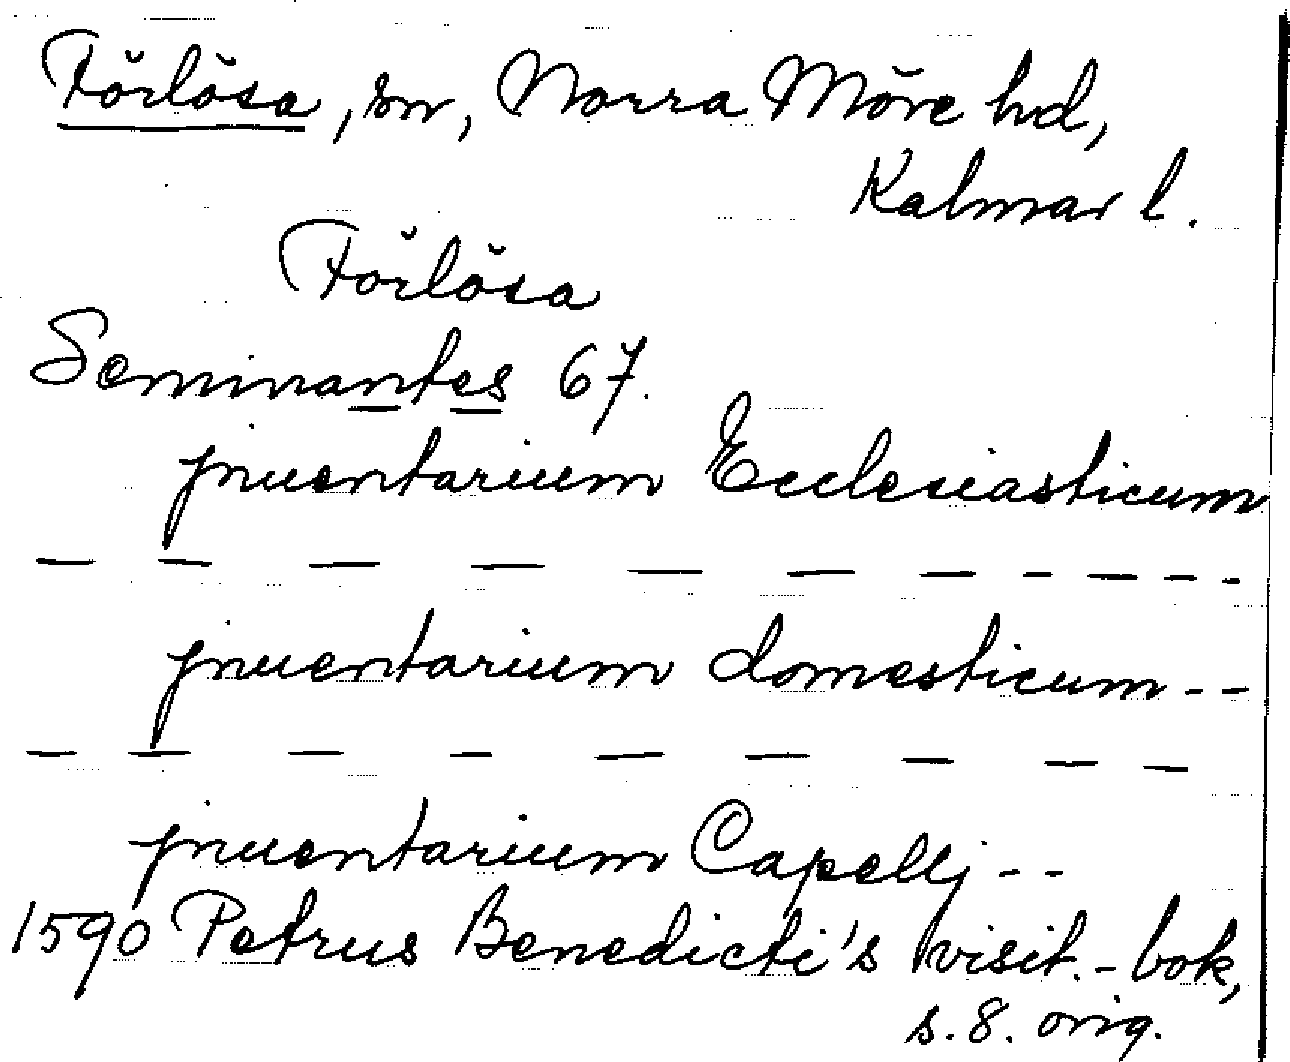 Förlösa, sn, Norra Möre hd,
Kalmar l.
Förlösa
Seminantes 67.
jnuentarium Ecclesiasticum
— — — — — — — — — — —
jnuentarium domesticum - -
— — — — — — — — —
jnuentarium Capellj - -
1590 Petrus Benedicti's visit.-bok,
s. 8. orig.